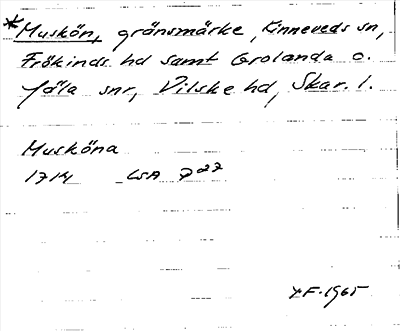 *Muskön, gränsmärke, Kinneveds sn,
Frökinds hd samt Grolanda o.
Jäla snr, Vilske hd, Skar. l.
Musköna
1714 LSA P 27
Y.F. 1965